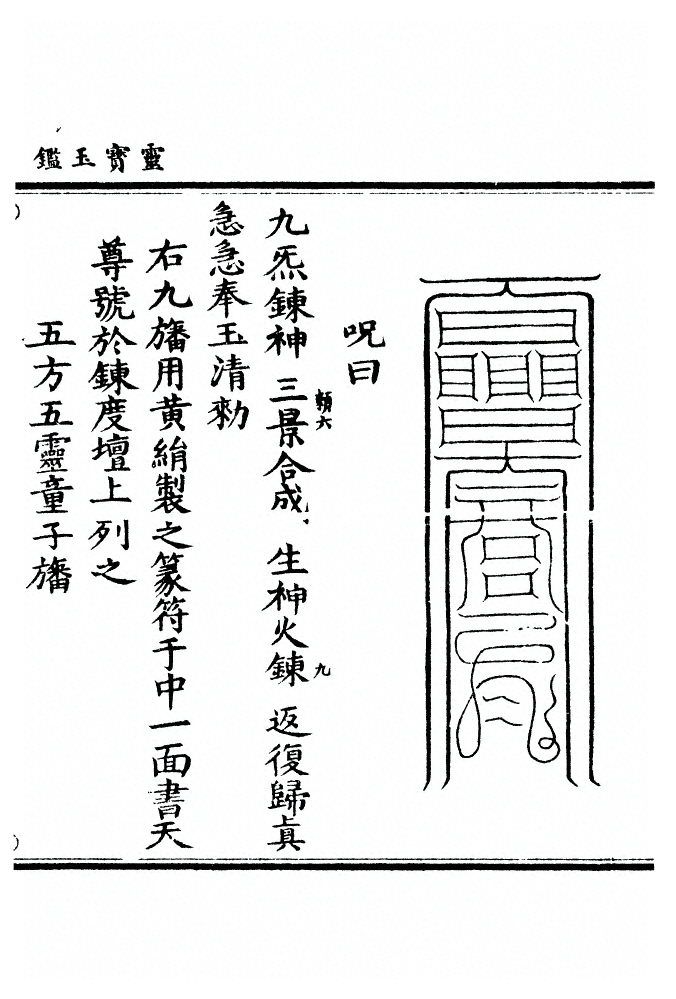 靈寶玉鑑
呪曰
九炁鍊神 三景合成 生神火鍊 返復歸眞
類六
九
急急奉玉清勑
右九旛用黄絹製之篆符于中一面書天
尊號於鍊度壇上列之
五方五靈童子旛